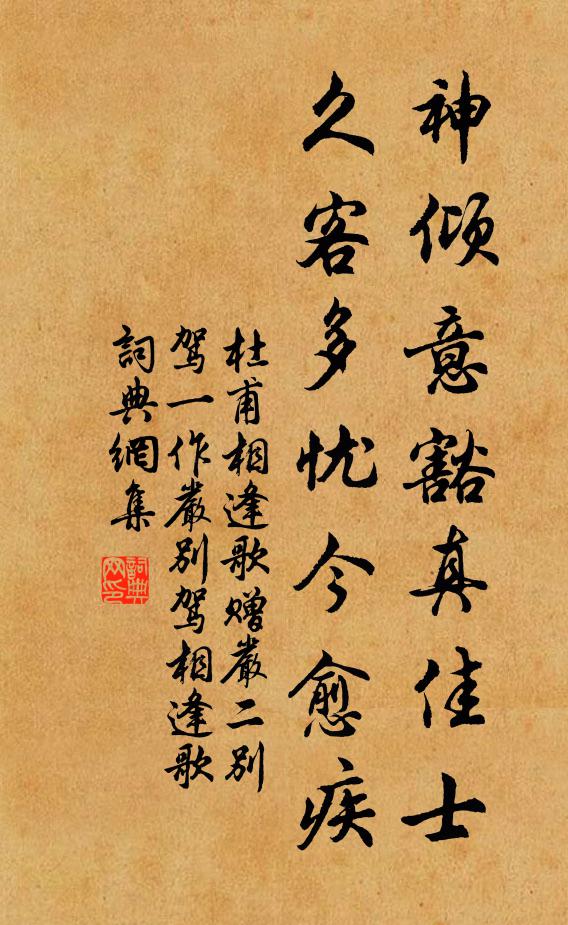 神倾意豁真佳士
久客多忧今愈疾
杜甫相逢歌赠嚴二别
驾一作嚴别驾相逢歌
詞典網集
詞典
网印